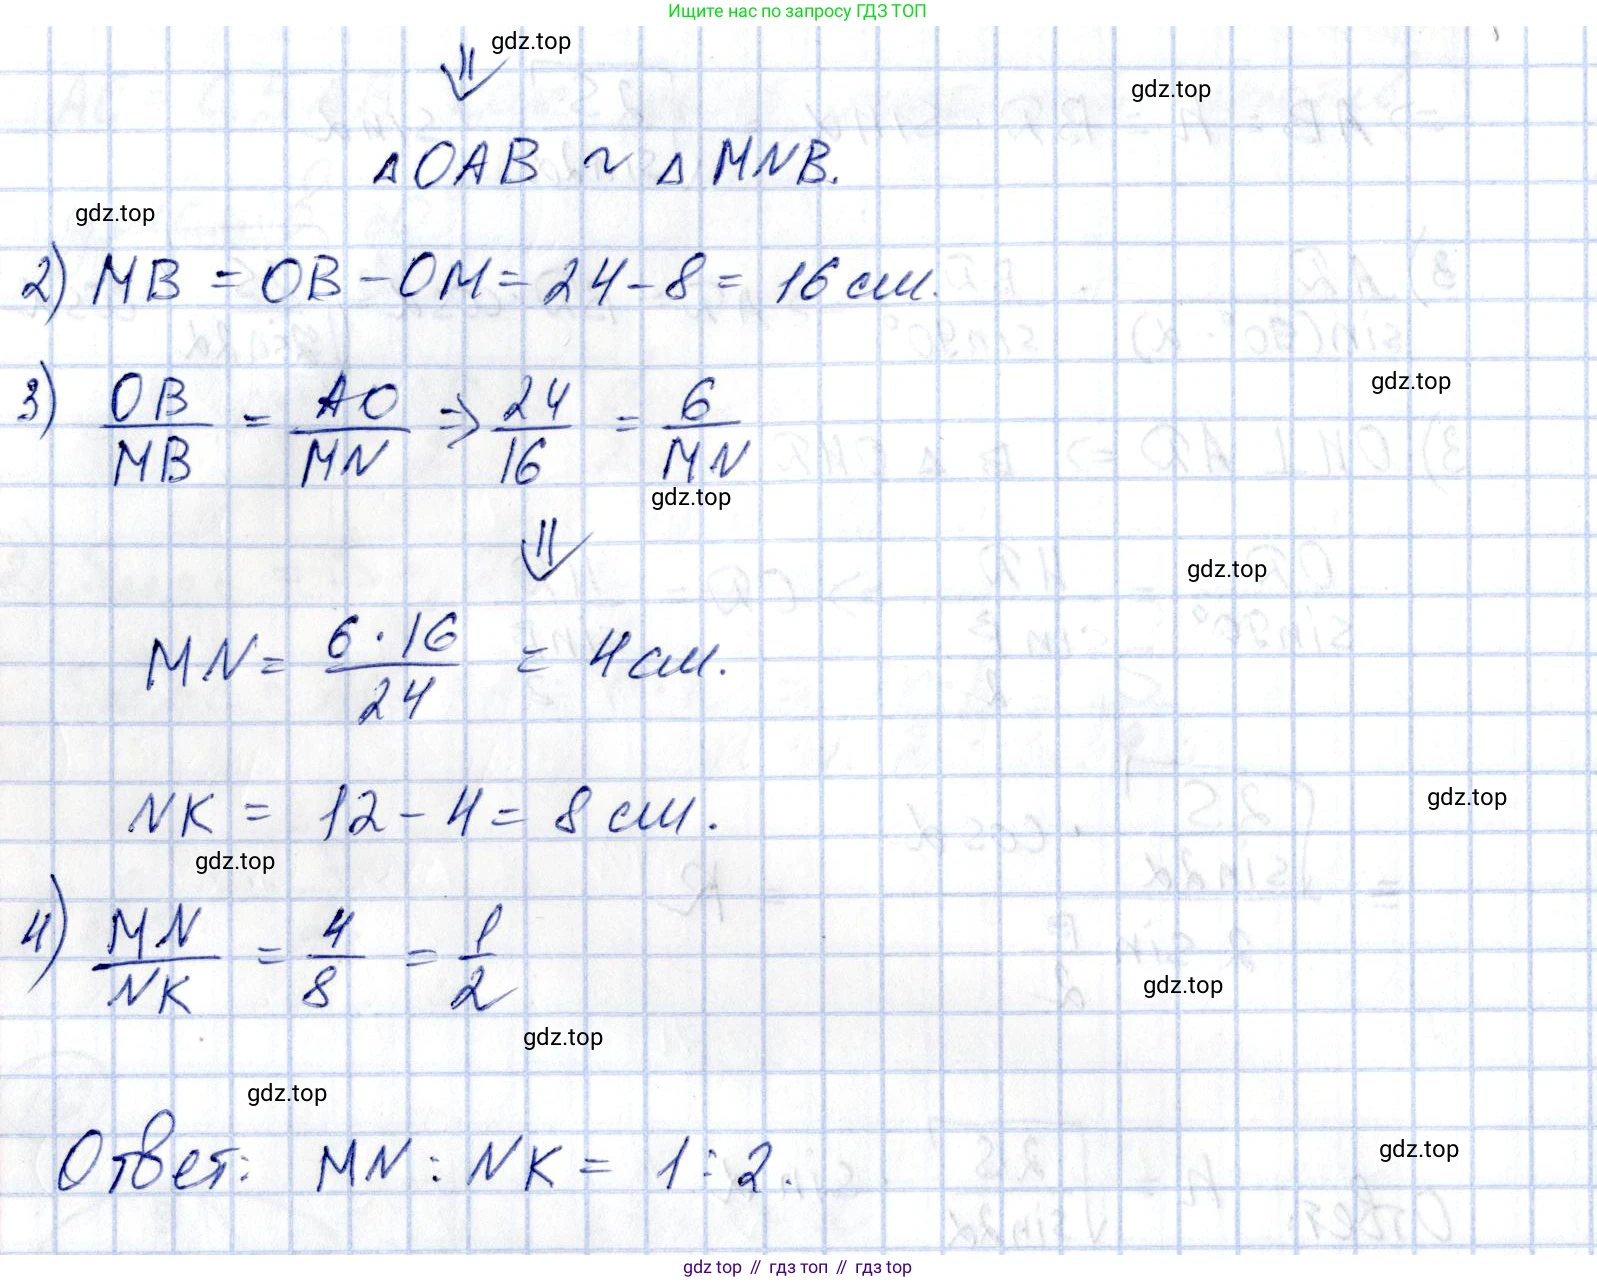 Ищите нас по запросу ГДЗ ТОП
⇓ gdz.top
gdz.top
ΔOAB ~ ΔMNB.
gdz.top
2) MB = OB - OM = 24 - 8 = 16 см.
gdz.top
3) OB/MB = AO/MN ⇒ 24/16 = 6/MN
gdz.top
⇓
gdz.top
MN = 6·16/24 = 4 см.
gdz.top
NK = 12 - 4 = 8 см.
gdz.top
4) MN/NK = 4/8 = 1/2
gdz.top
gdz.top
gdz.top
gdz.top
Ответ: MN : NK = 1 : 2.
gdz.top // гдз топ // гдз top